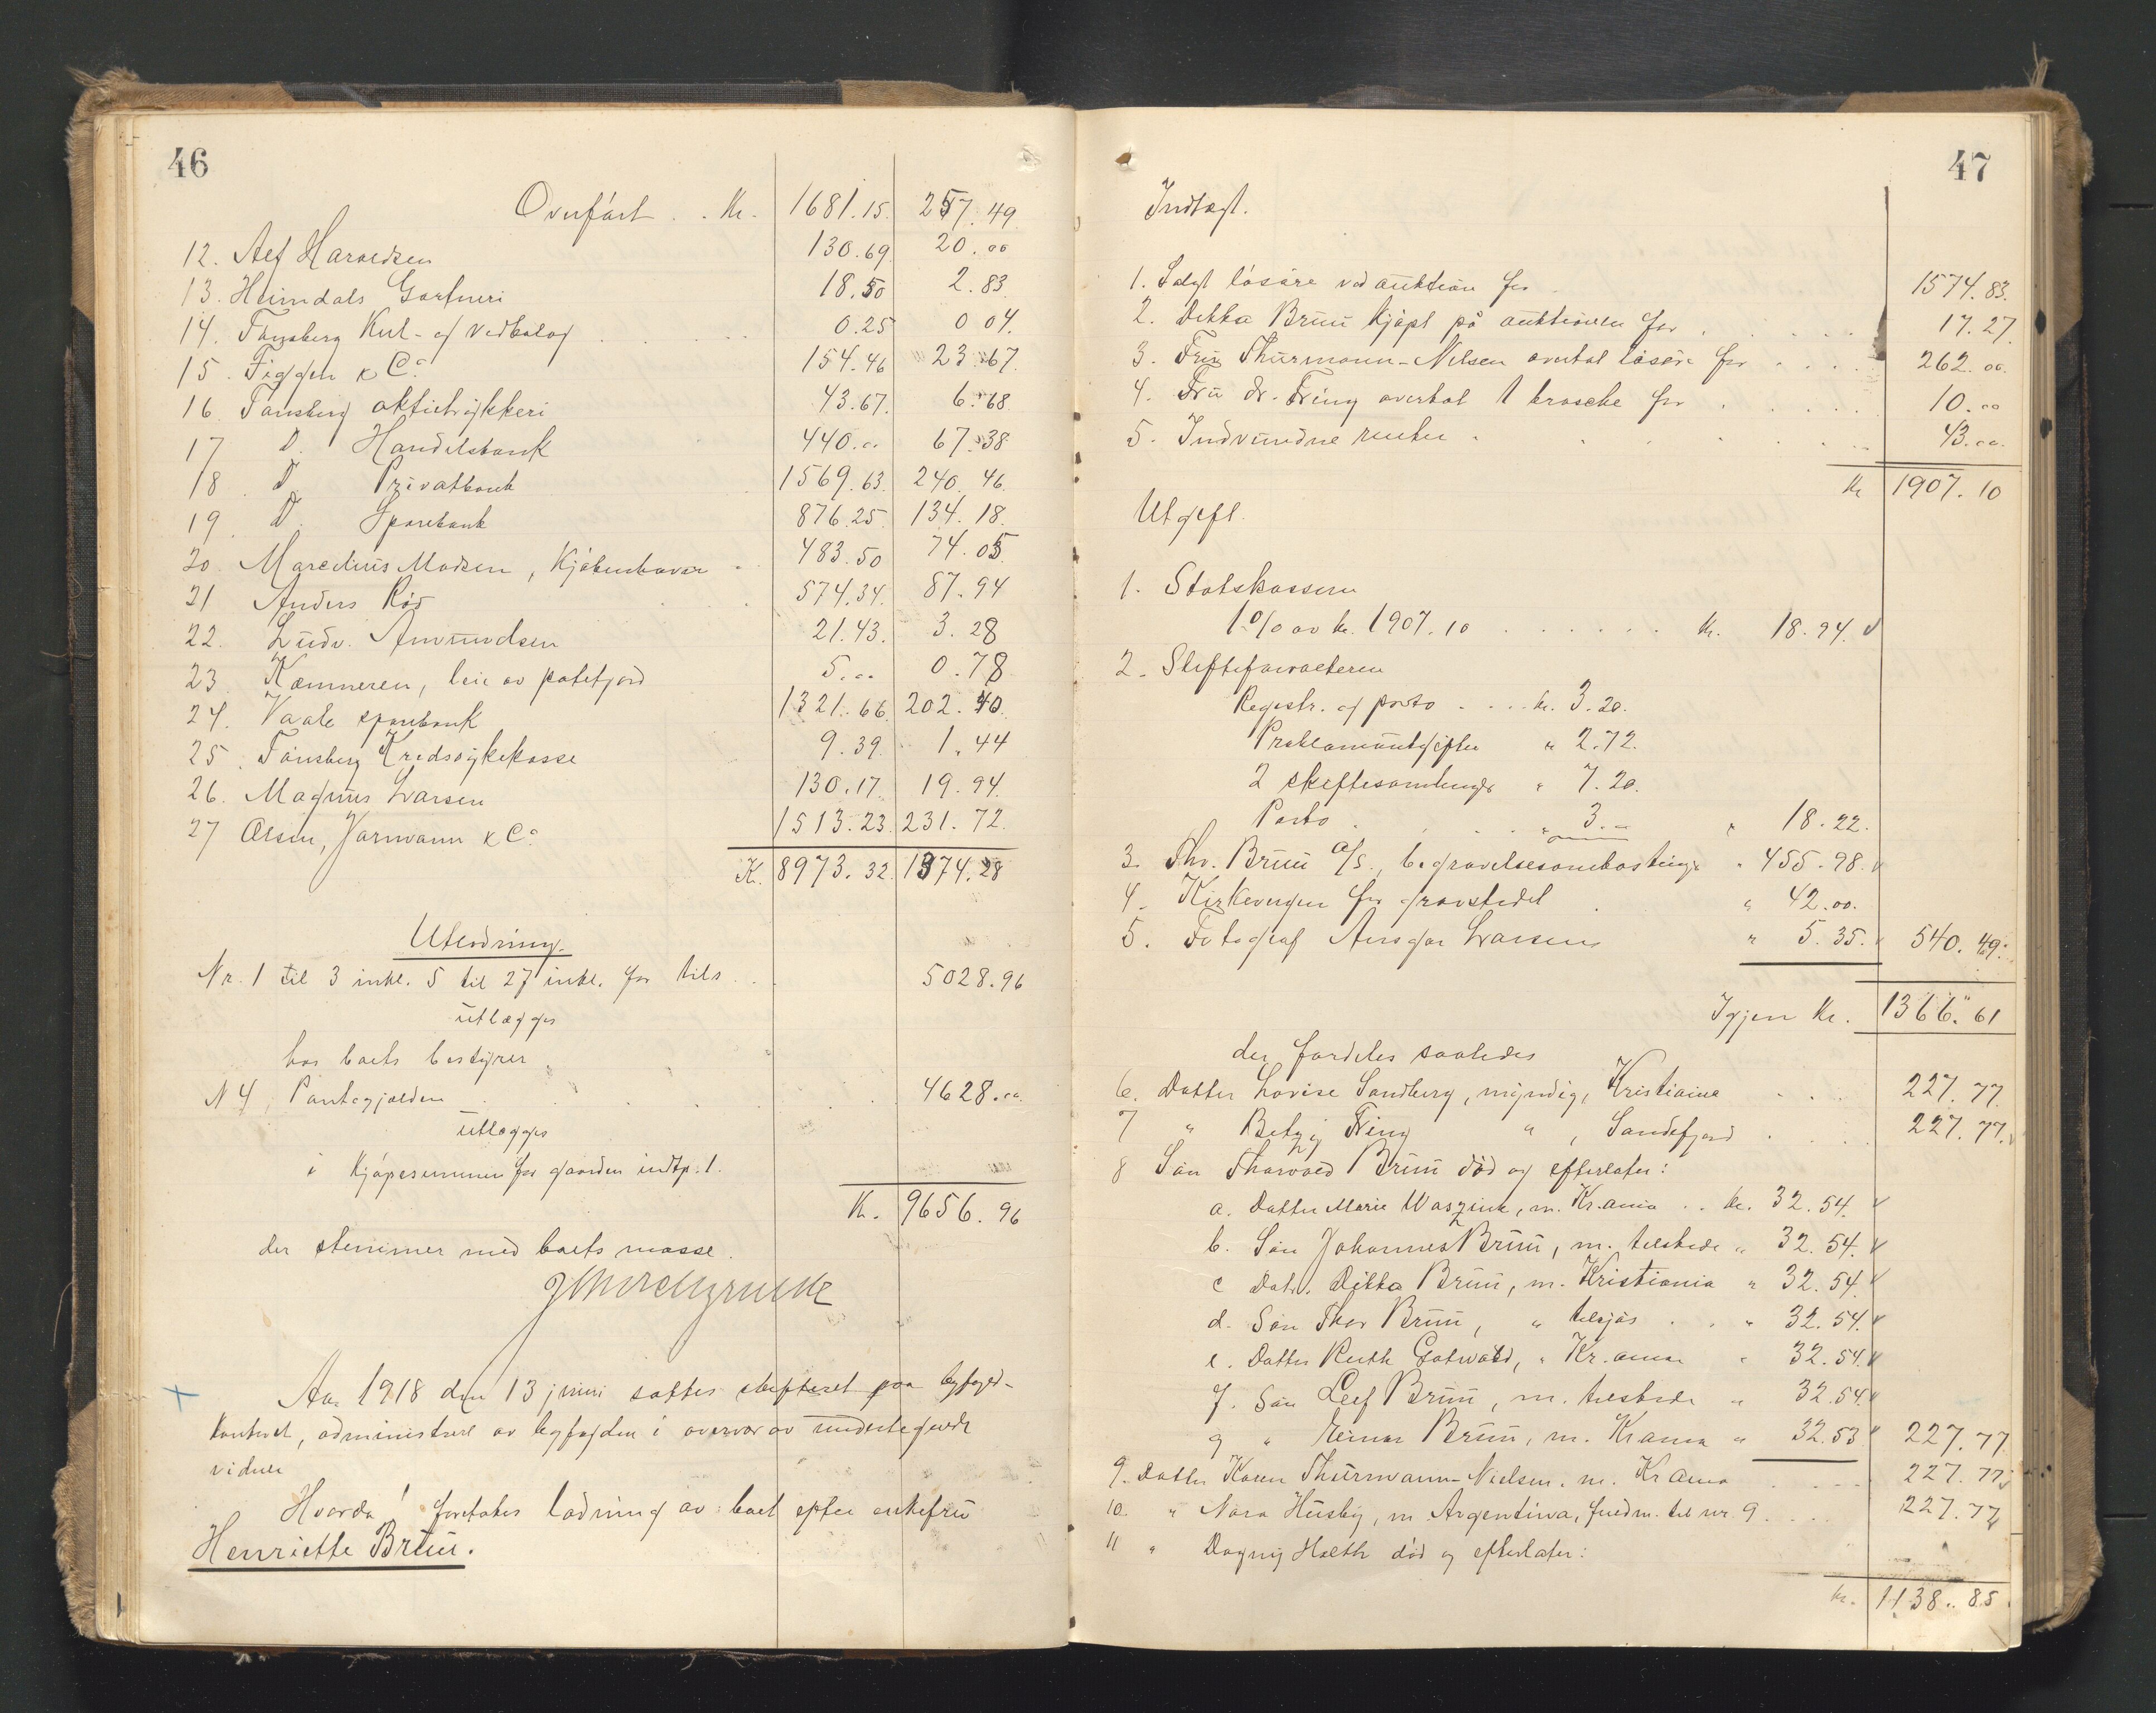 46
Overført . . Kr. 1681.15. 257.49
12. Alf Haroldsen 130.69 20.00
13. Heimdals Gartneri 18.50 2.83
14. Tønsberg Kul- og vedbolag 0.25 0 04.
15. Figgen & Co 154.46 23.67.
16. Tønsberg aktietrykkeri 43.67. 6.68
17 D. Handelsbank 440.00 67.38
18. D. Privatbank 1569.63. 240.46.
19. D. Sparebank 876.25. 134.18.
20. Marcelius Madsen, Kjøbenhavn 483.50 74.05
21 Anders Rød 574.34. 87.94
22. Ludv. Amundsen 21.43. 3.28
23 Kæmneren, leie av potetjord 5.00 0.78
24. Vaale sparebank 1321.66. 202.40.
25. Tønsberg Kredssykekasse 9.39. 1.44
26. Magnus Larsen 130.17. 19.94.
27 Olsen, Jarmann & Co 1513.23. 231.72.
Kr. 8973.32. 1374.28
Utlodning.
Nr. 1 til 3 inkl. 5 til 27 inkl. for tils . . 5028.96
utlægges
hos boets bestyrer
N 4, Pantegjælden 4628.00
utlægges
i Kjøpesummen for gaarden indtp. 1.
Kr. 9656.96
der stemmer med boets masse.
Aar 1918 den 13 juni sattes skifteret paa byfoged-
kontoret, administrert av byfogden i overvær av undertegnede
vidner
Hvorda! foretokes lodning av boet efter enkefru
Henriette Bruu.
47
Indtægt.
1. Solgt løsøre ved auktion for 1574.83.
2. Dekka Bruu kjøpt på auktionen for 17.27.
3. Fru Thurmann-Nielsen overtat løsøre for 262.00.
4. Fru dr. Fring overtat 1 brosche for 10.00
5. Indvundne renter 43.00.
Kr 1907.10
Utgift.
1. Statskassen
1% av kr. 1907.10 . . . . . . kr. 18.94.
2. Skifteforvalteren
Registr. og porto . . . kr. 3.20.
Proklamautgifter " 2.72.
2 skiftesamlinger " 7.20.
Porto . . . " 3.- " 18.22.
3. Thv. Bruu A/S, begravelsesomkostninger " 455.98.
4. Kirkevergen for gravstedet " 42.00.
5. Fotograf Ansgar Larsens " 5.35. 540.49.
Igjen Kr. 1366.61
der fordeles saaledes
6. Datter Lovise Sandberg, myndig, Kristiania . . . 227.77.
7 " Betzy Fring " , Sandefjord . . . 227.77.
8 Søn Thorvald Bruu død og efterlater:
a. Datter Marie Waszink, m. Kr.ania . . kr. 32.54.
b. Søn Johannes Bruu, m. tilstede " 32.54.
c Datr. Dikka Bruu, m. Kristiania " 32.54.
d. Søn Thor Bruu, " tilsjøs . . " 32.54.
e. Datter Ruth Gotwald, " Kr.ania " 32.54.
f. Søn Leif Bruu, m. tilstede " 32.54.
g " Reimar Bruu, m. Krania " 32.53 227.77.
9. Datter Karen Thurmann-Nielsen. m. Krania . . . . 227.77.
10. " Nora Husby, m Argentina, fuldm. til nr. 9 . . . . 227.77
11 " Dagny Holth død og efterlater:
kr. 1138.85